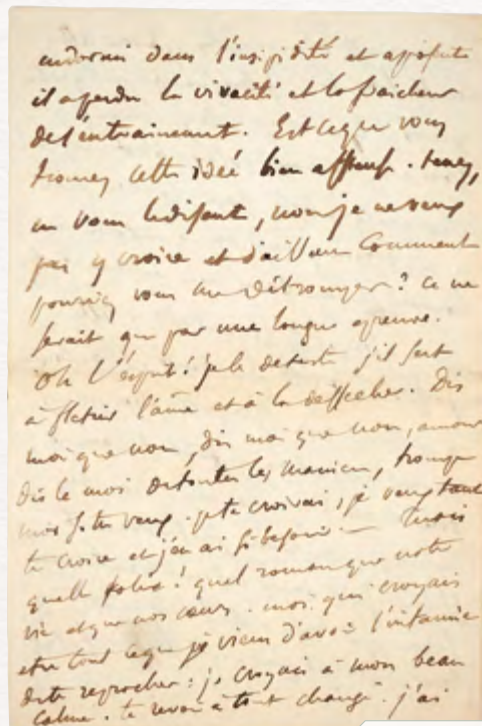 endormi dans l'insipidité et
il a perdu la vivacité et la fraicheur
de l'entrainement. Est ce que vous
trouvez cette idée bien affreuse. tenez,
en vous le disant, non je ne veux
pas y croire et d'ailleurs comment
pourriez vous me détromper? ce ne
serait que par une longue epreuve.
Oh l'esprit! je le deteste s'il sert
à fletrir l'âme et à la dessecher. Dis
moi que non, dis moi que non, amour
dis le moi de toutes les manieres, trompe
moi si tu veux. je te croirai, je veux tant
te croire et j'en ai si besoin — mais
quelle folie! quel roman que notre
vie et que nos cœurs. moi qui croyais
etre tout ce que je viens d'avoir l'
de te reprocher: je croyais à mon beau
calme. te revoir a tout changé. j'ai